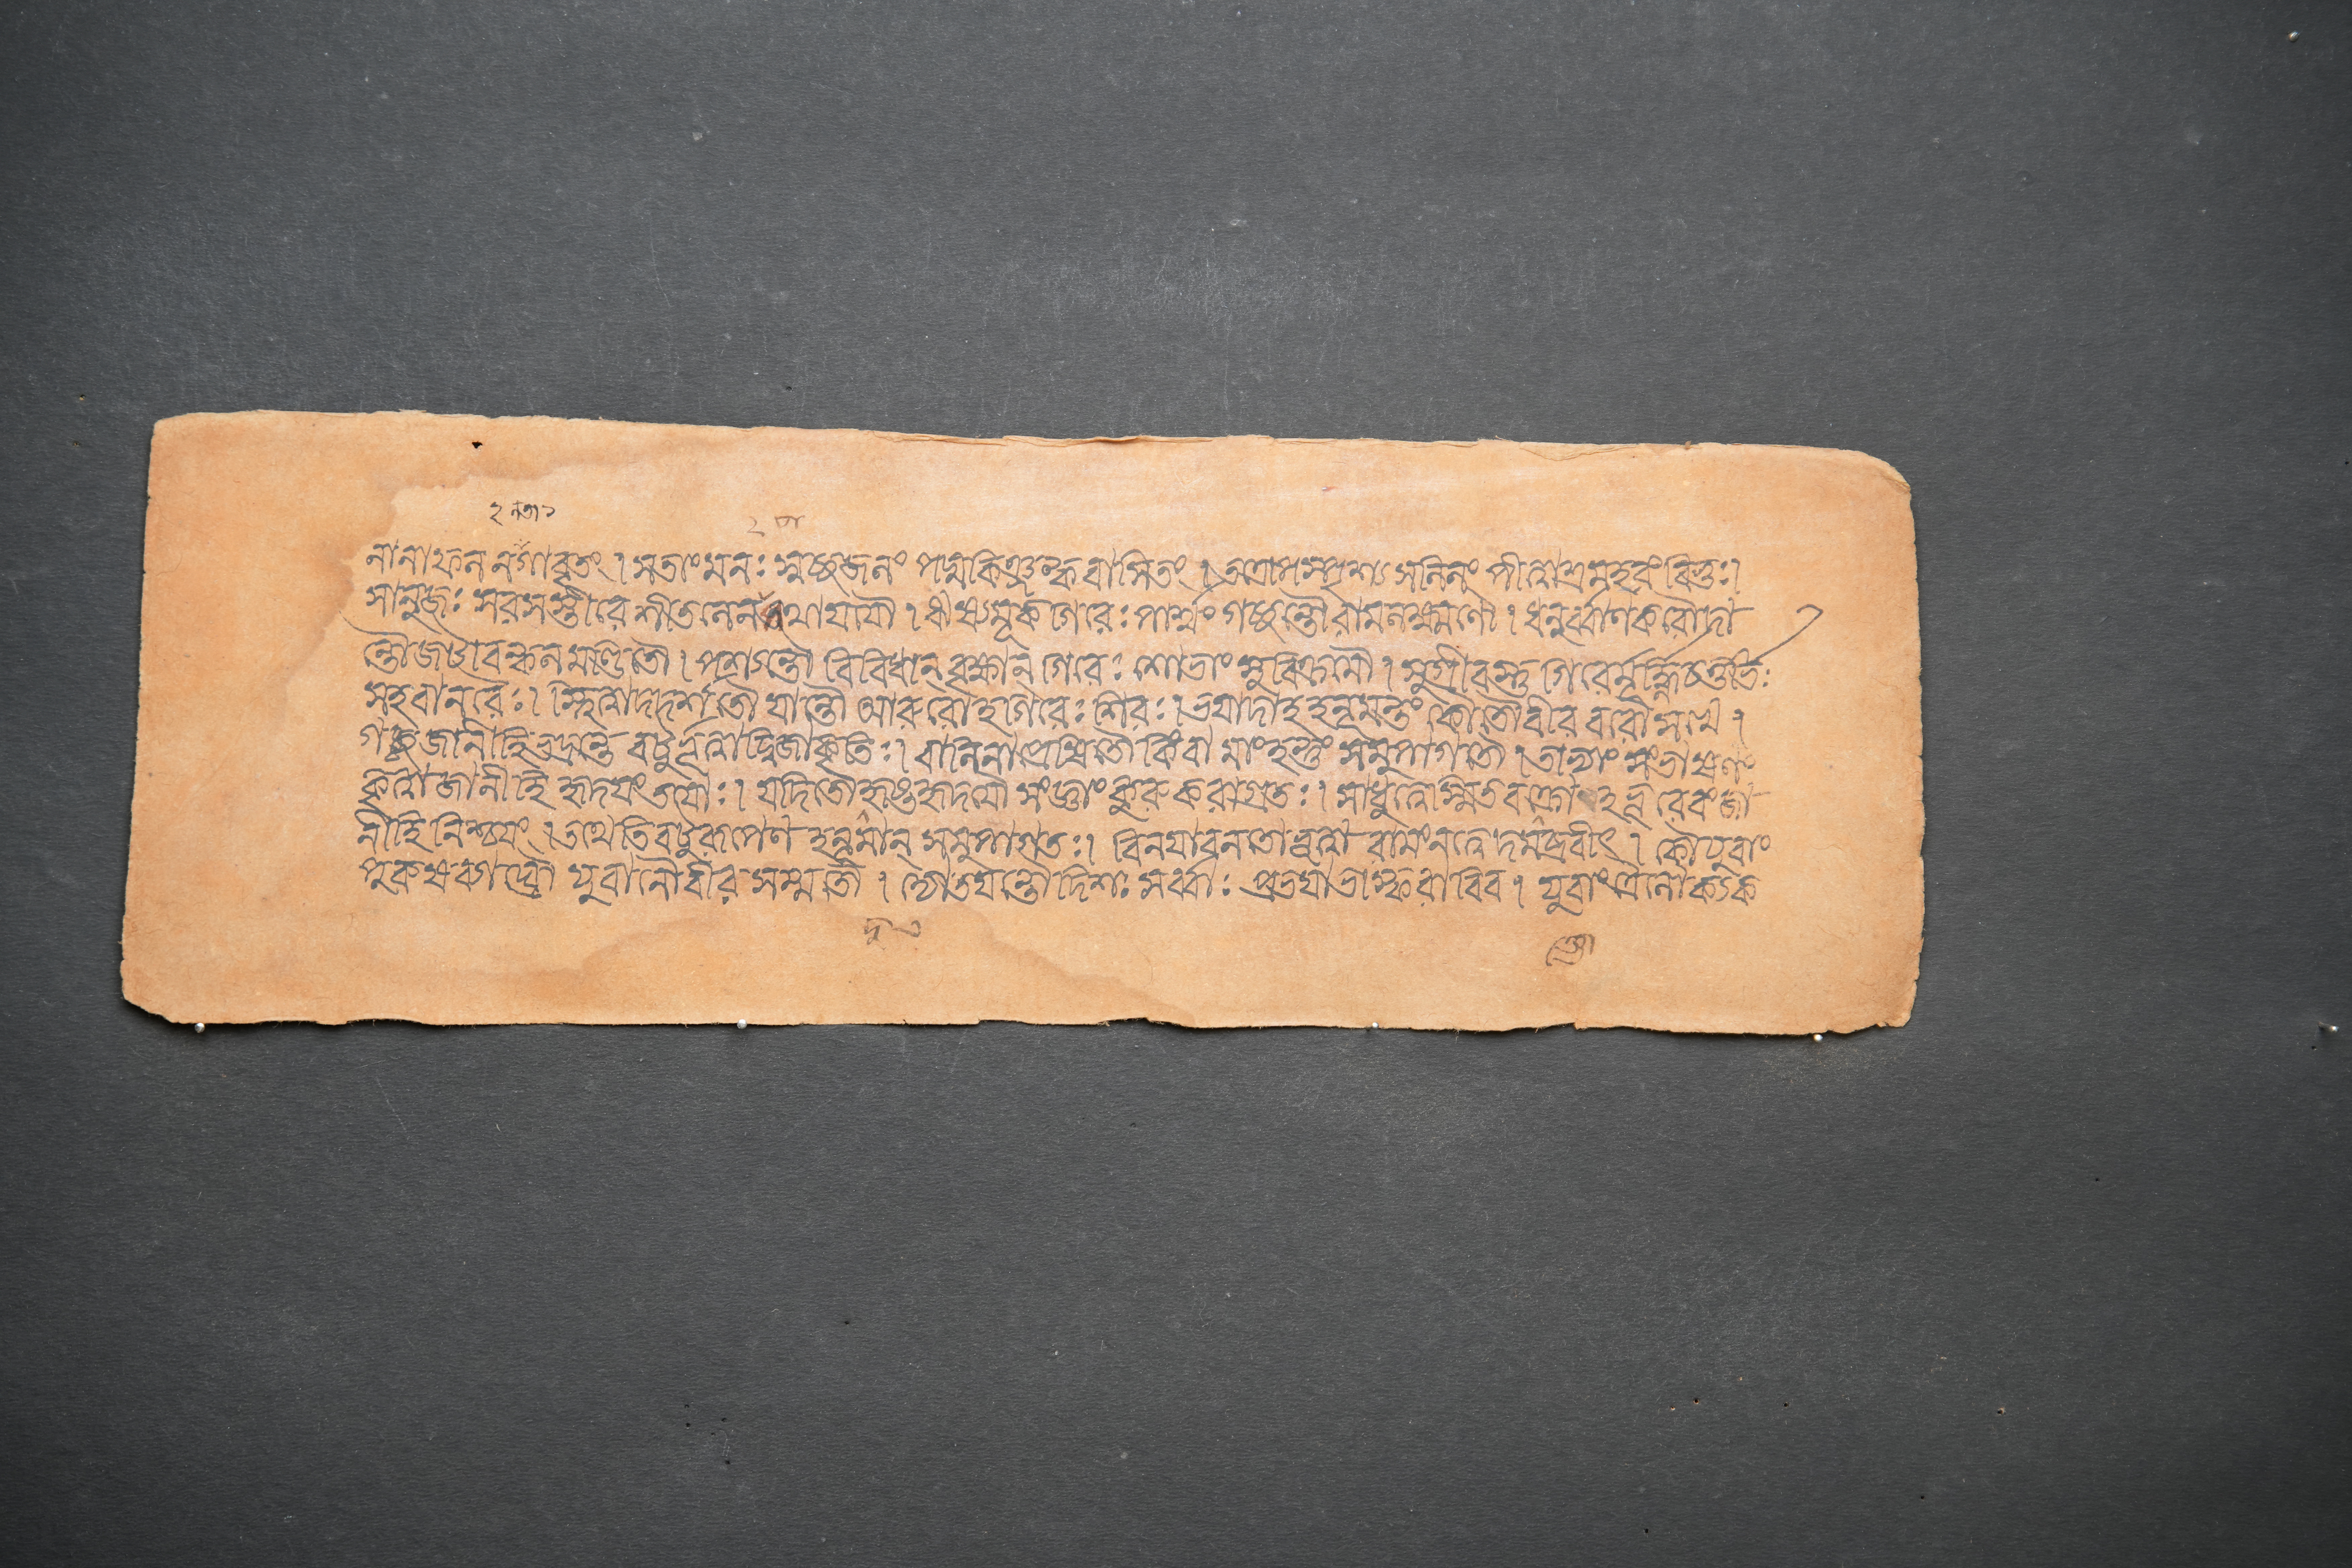 নানাফলনগাবৃতং । সতাং মনঃ স্বচ্ছজলং পদ্মকিঞ্জল্কবাসিতং । তত্রোপস্পৃশ্য সলিলং পীত্বা শ্রমহরং বিভুঃ ।
সানুজঃ সরসস্তীরে শীতলেন পথা যযৌ । ঋষ্যমূকগিরেঃ পার্শ্বং গচ্ছন্তৌ রামলক্ষ্মণৌ । ধনুর্ব্বাণকরৌ দা
ন্তৌ জটাবল্কলমণ্ডিতৌ । পশ্যন্তৌ বিবিধান্ বৃক্ষান্ গিরেঃ শোভাং সুবিক্রমৌ । সুগ্রীবস্তু গিরের্মূর্দ্ধ্নি চতুর্ভিঃ
সহ বানরৈঃ । স্থিত্বা দদর্শ তৌ যান্তৌ আরুরোহ গিরেঃ শিরঃ । ভয়াদাহ হনূমন্তং কৌ তৌ বীরবরৌ সখে ।
গচ্ছ জানীহি ভদ্রন্তে বটুর্ভূত্বা দ্বিজাকৃতিঃ । বালিনা প্রেষিতৌ কিং বা মাং হন্তুং সমুপাগতৌ । তাভ্যাং সংভাষণং
কৃত্বা জানীহি হৃদয়ং তয়োঃ । যদি তৌ দুষ্টহৃদয়ৌ সংজ্ঞাং কুরু করাগ্রতঃ । সাধুত্বে স্মিতবক্ত্রো
নীহি নিশ্চয়ং । তথেতি বটুরূপেণ হনূমান্ সমুপাগতঃ । বিনয়াবনতো ভূত্বা রামং নত্বেদমব্রবীৎ । কৌ যুবাং
পুরুষব্যাঘ্রৌ যুবানৌ বীরসম্মতৌ । দ্যোতয়ন্তৌ দিশঃ সর্ব্বাঃ প্রভয়া ভাস্করাবিব । যুবাং ত্রৈলোক্যক